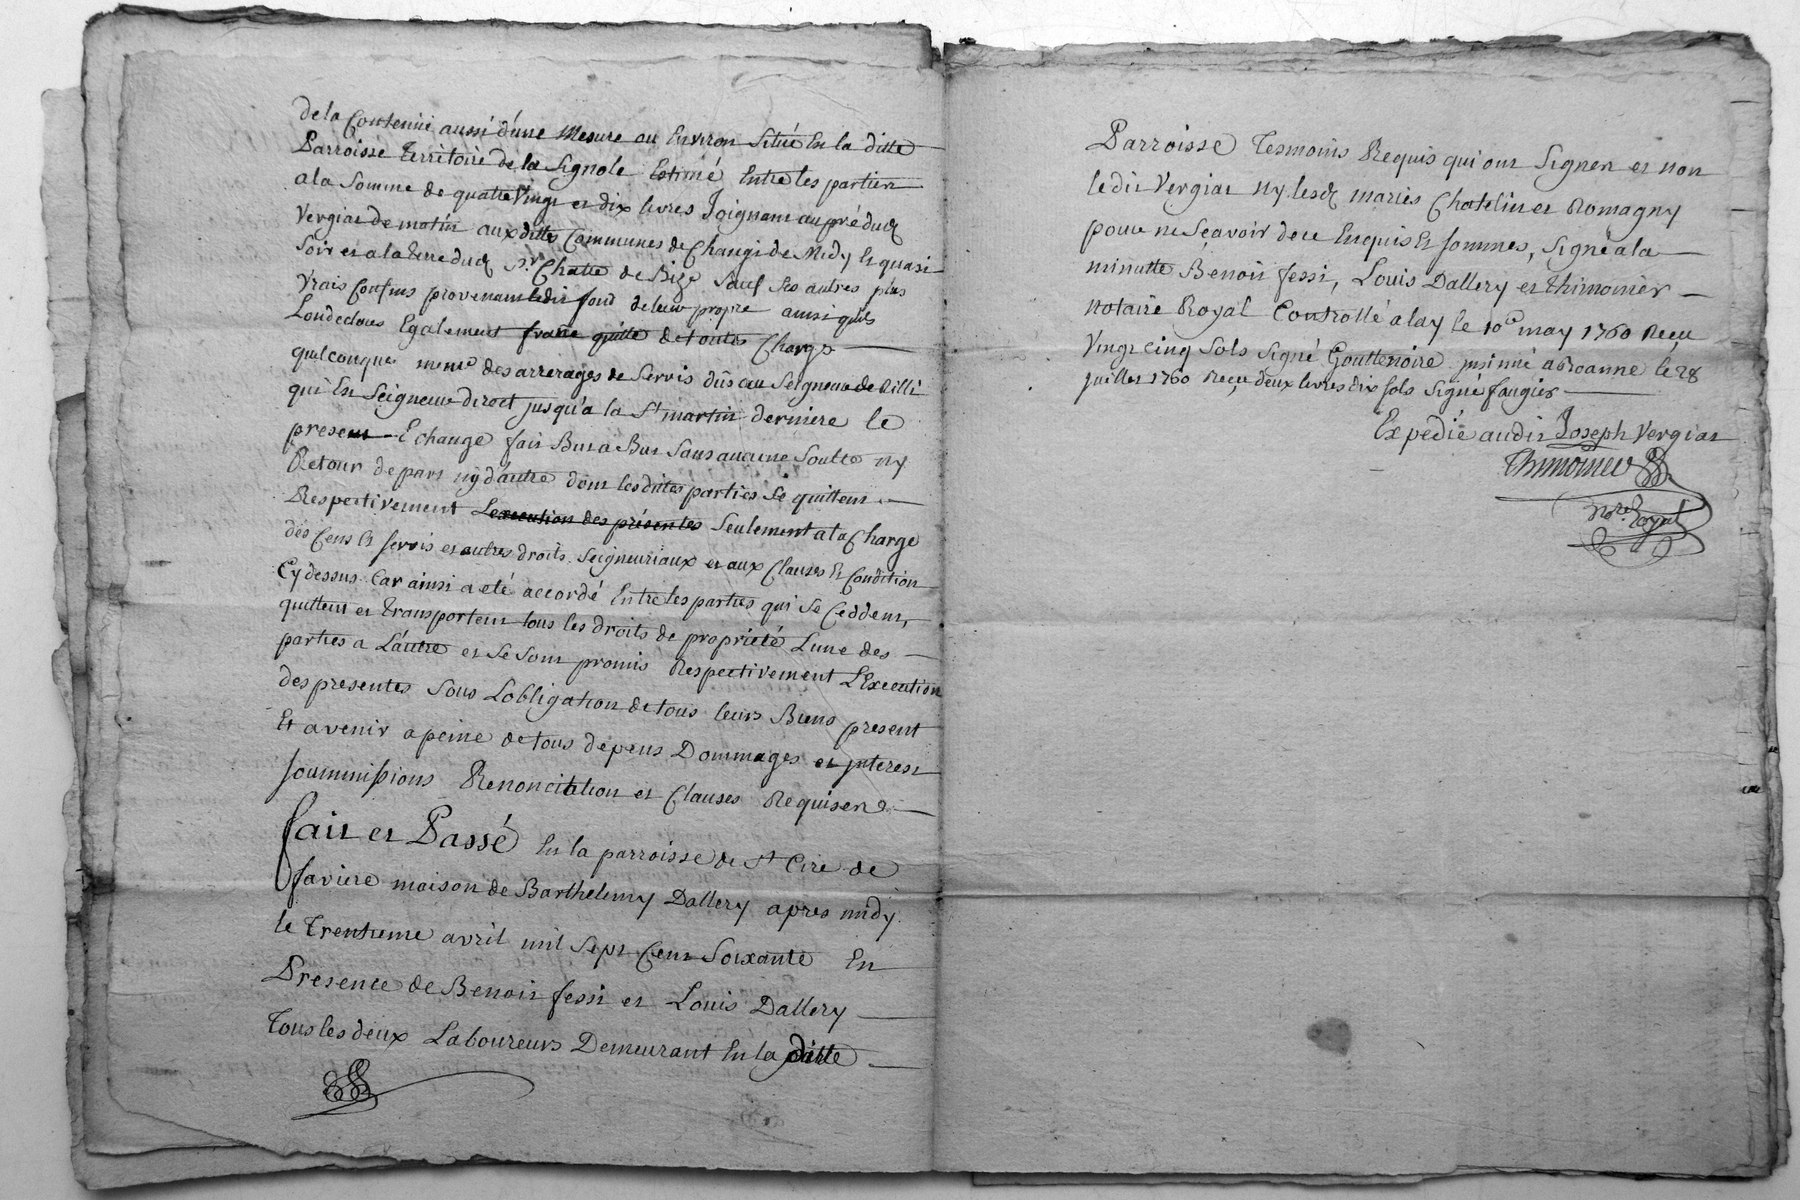 de la Contenüe aussi d'une Mesure ou Environ Situé En la ditte
Parroisse territoire de la Signole Estimé Entre les partien
a la Somme de quatte Vingt et dix livres Joignant au pré dud
Vergiat de matin aux dittes Communes de Changi de Midy Et quasi
Soir et a la terre dud Sr. Chatte de Bize Sauf Ses autres plus
Vrais Confins provenant ledit fond de leur propre ainsi quils
Egalement franc quitte de toutes Charge
quelconques meme des arrerages de Servis dûs au Seigneur de
qui En Seigneur direct jusqu'a la St martin derniere le
present Echange fait But a But Sans aucune Soulte ny
Retour de part ny d'autre dont les dittes parties Se quittent
Respectivement Lexecution des présentes Seulement a la Charge
des Cens Et Servis et autres droits Seigneuriaux et aux Clauses Et Condition
Cy dessus Car ainsi a eté accordé Entre les parties qui Se Ceddent,
quittent et transportent tous les droits de propriété Lune des
parties a L'autre et Se Sont promis Respectivement L'Execution
des presentes Sous Lobligation de tous leurs Biens present
Et avenir a peine de tous depens Dommages et jnterest
Soummissions Renoncitation et Clauses Requisen
fait et Passé En la parroisse de St Cire de
faviere maison de Barthelemy Dallery apres midy
le trentieme avril mil Sept Cent Soixante En
Presence de Benoit fessi et Louis Dallery
Tous les deux Laboureurs Demeurant En la ditte
Parroisse Tesmoins Requis qui ont Signer et non
le dit Vergiat ny lesd mariés Chatelin et Romagny
pour ne Sçavoir de ce Enquis Et Sommes, Signé a la
minutte Benoit fessi, Louis Dallery et thimonier
notaire Royal Controllé a lay le 10e may 1760 Reçu
Vingt cinq Sols Signé Gouttenoire jnsinué a Roanne le 28
juillet 1760 Reçu deux livres dix Sols Signé faugier
Expedié audit Joseph Vergiat
Thimonier
Nore Royal